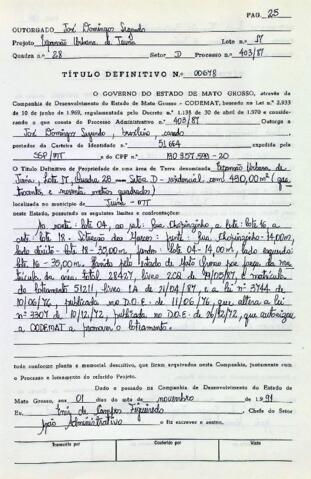 PAG. 25
OUTORGADO José Domingos Segundo
Projeto Expansão Urbana de Juína Lote n.° 17
Quadra n.° 28 Setor D Processo n.° 403/87
TÍTULO DEFINITIVO N.° 00678
O GOVERNO DO ESTADO DE MATO GROSSO, através da
Companhia de Desenvolvimento do Estado de Mato Grosso - CODEMAT, baseado na Lei n.° 2.933
de 10 de junho de 1969, regulamentada pelo Decreto n.° 1.138 de 30 de abril de 1970 e conside-
rando o que consta do Processo Administrativo n.° 403/87 Outorga a
José Domingos Segundo, brasileiro, casado
portador da Carteira de Identidade n.° 51664 expedida pela
SSP/MT e do CPF n.° 130 357 599-20
O Título Definitivo de Propriedade de uma área de Terra denominada Expansão Urbana de
Juína, Lote 17, Quadra 28 - Setor D - residencial com 490,00m² (qua
trocentos e noventa metros quadrados)
localizada no município de Juína - MT
neste Estado, possuindo os seguintes limites e confrontações:
Ao norte: lote 04, ao sul: Rua Chopinzinho, a leste: lote 16, a
oeste: lote 18 - Situação dos Marcos: frente: Rua Chopinzinho - 14,00m,
lado direito - lote 18 - 35,00m, fundo - lote 04 - 14,00m, lado esquerdo
lote 16 - 35,00m. Havido pelo Estado de Mato Grosso por força da ma
trícula da área total 28427, livro 2CQ de 29/05/87, e matrícula
do loteamento 51211, livro 1A de 21/04/87, e a lei n° 3744 de
10/06/76, publicada no D.O.E. de 11/06/76, que altera a lei
n° 3307 de 10/12/72, publicada no D.O.E. de 26/12/72, que autorizou
a CODEMAT a promover o loteamento.
tudo conforme planta e memorial descritivo, que ficam arquivados nesta Companhia, juntamente com
o Processo e loteamento do referido Projeto.
Dado e passado na Companhia de Desenvolvimento do Estado de
Mato Grosso, aos 01 dias do mês de novembro de 1991
Eu, Luiz de Campos Figueiredo, Chefe do Setor
Apoio Administrativo o fiz escrever e assino.
Transcrito por Conferido por Visto